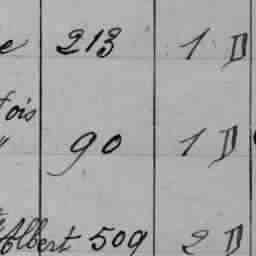 e 213 1 D
fois
" 90 1 D
Albert 509 2 D